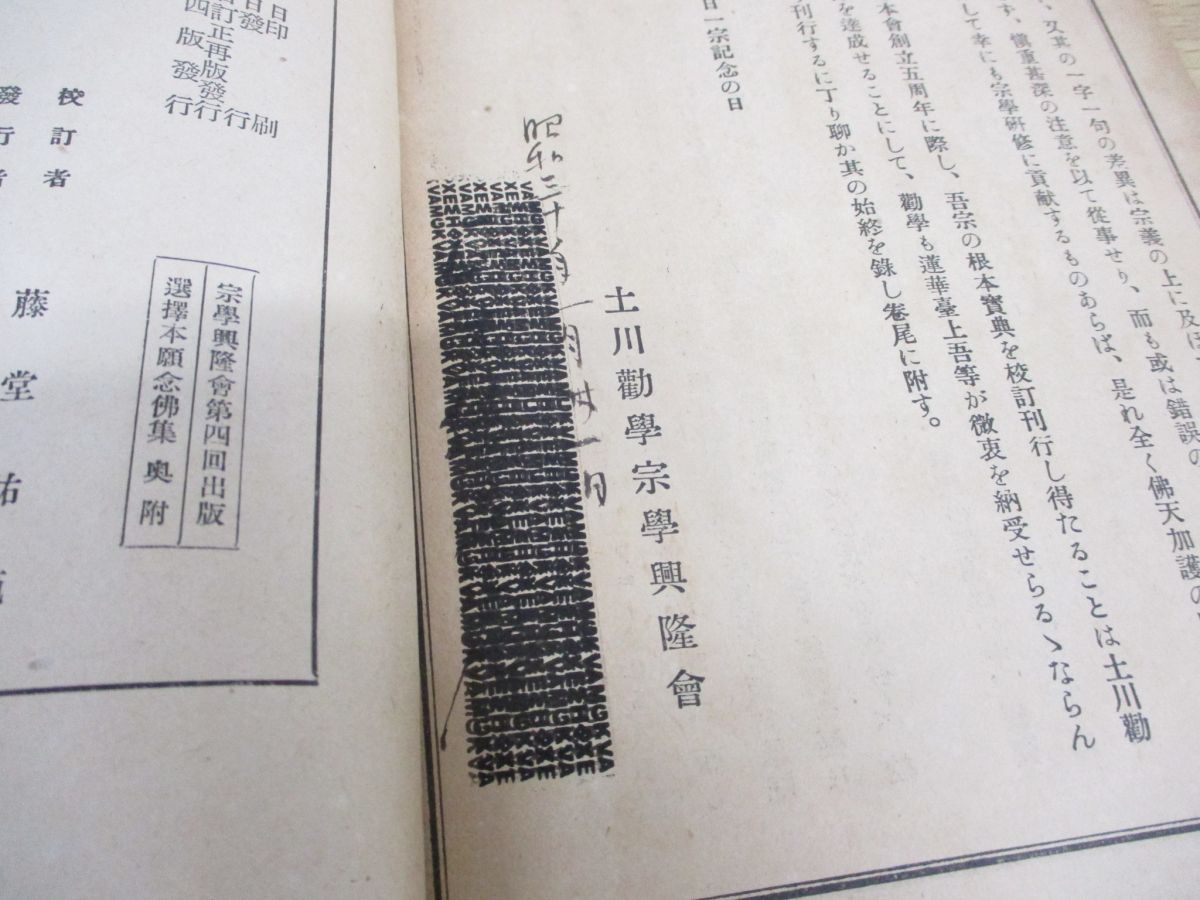 又其の一字一句の差異は宗義の上に及ぼ
す、愼重甚深の注意を以て從事せり、而も或は錯誤の
して幸にも宗學研修に貢献するものあらば、是れ全く佛天加護の
本會創立五周年に際し、吾宗の根本寶典を校訂刊行し得たることは土川勸
を達成せることにして、勸學も蓮華臺上吾等が微衷を納受せらるゝならん
刊行するに丁り聊か其の始終を錄し卷尾に附す。
日一宗記念の日
土川勸學宗學興隆會
昭和三十
日印刷
日發行
訂正再版發行
四版發行
校訂者
發行者
藤堂祐
宗學興隆會第四回出版
選擇本願念佛集 奧附